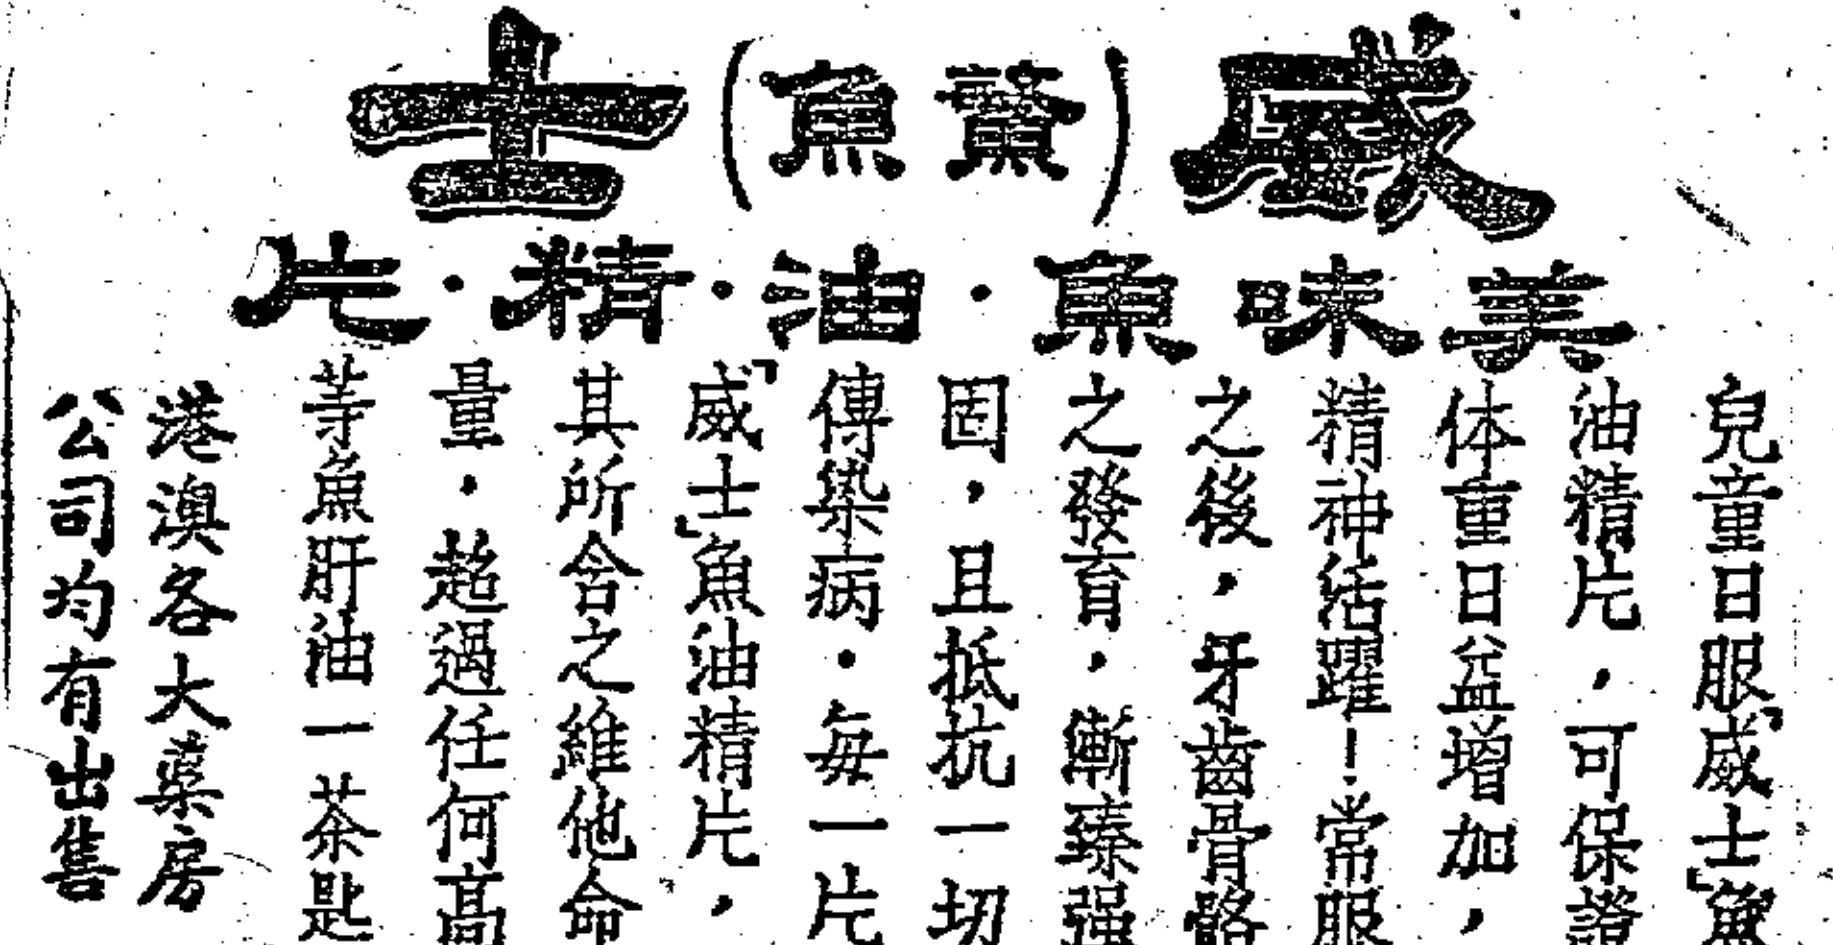 威(鰲魚)士
美味魚·油·精·片
兒童日服「威士」魚
油精片,可保證
体重日益增加,
精神活躍!常服
之後,牙齒骨骼
之發育,漸臻强
固,且抵抗一切
傳染病·每一片
「威士」魚油精片,
其所含之維他命
量·超過任何高
等魚肝油一茶匙
港澳各大藥房
公司均有出售